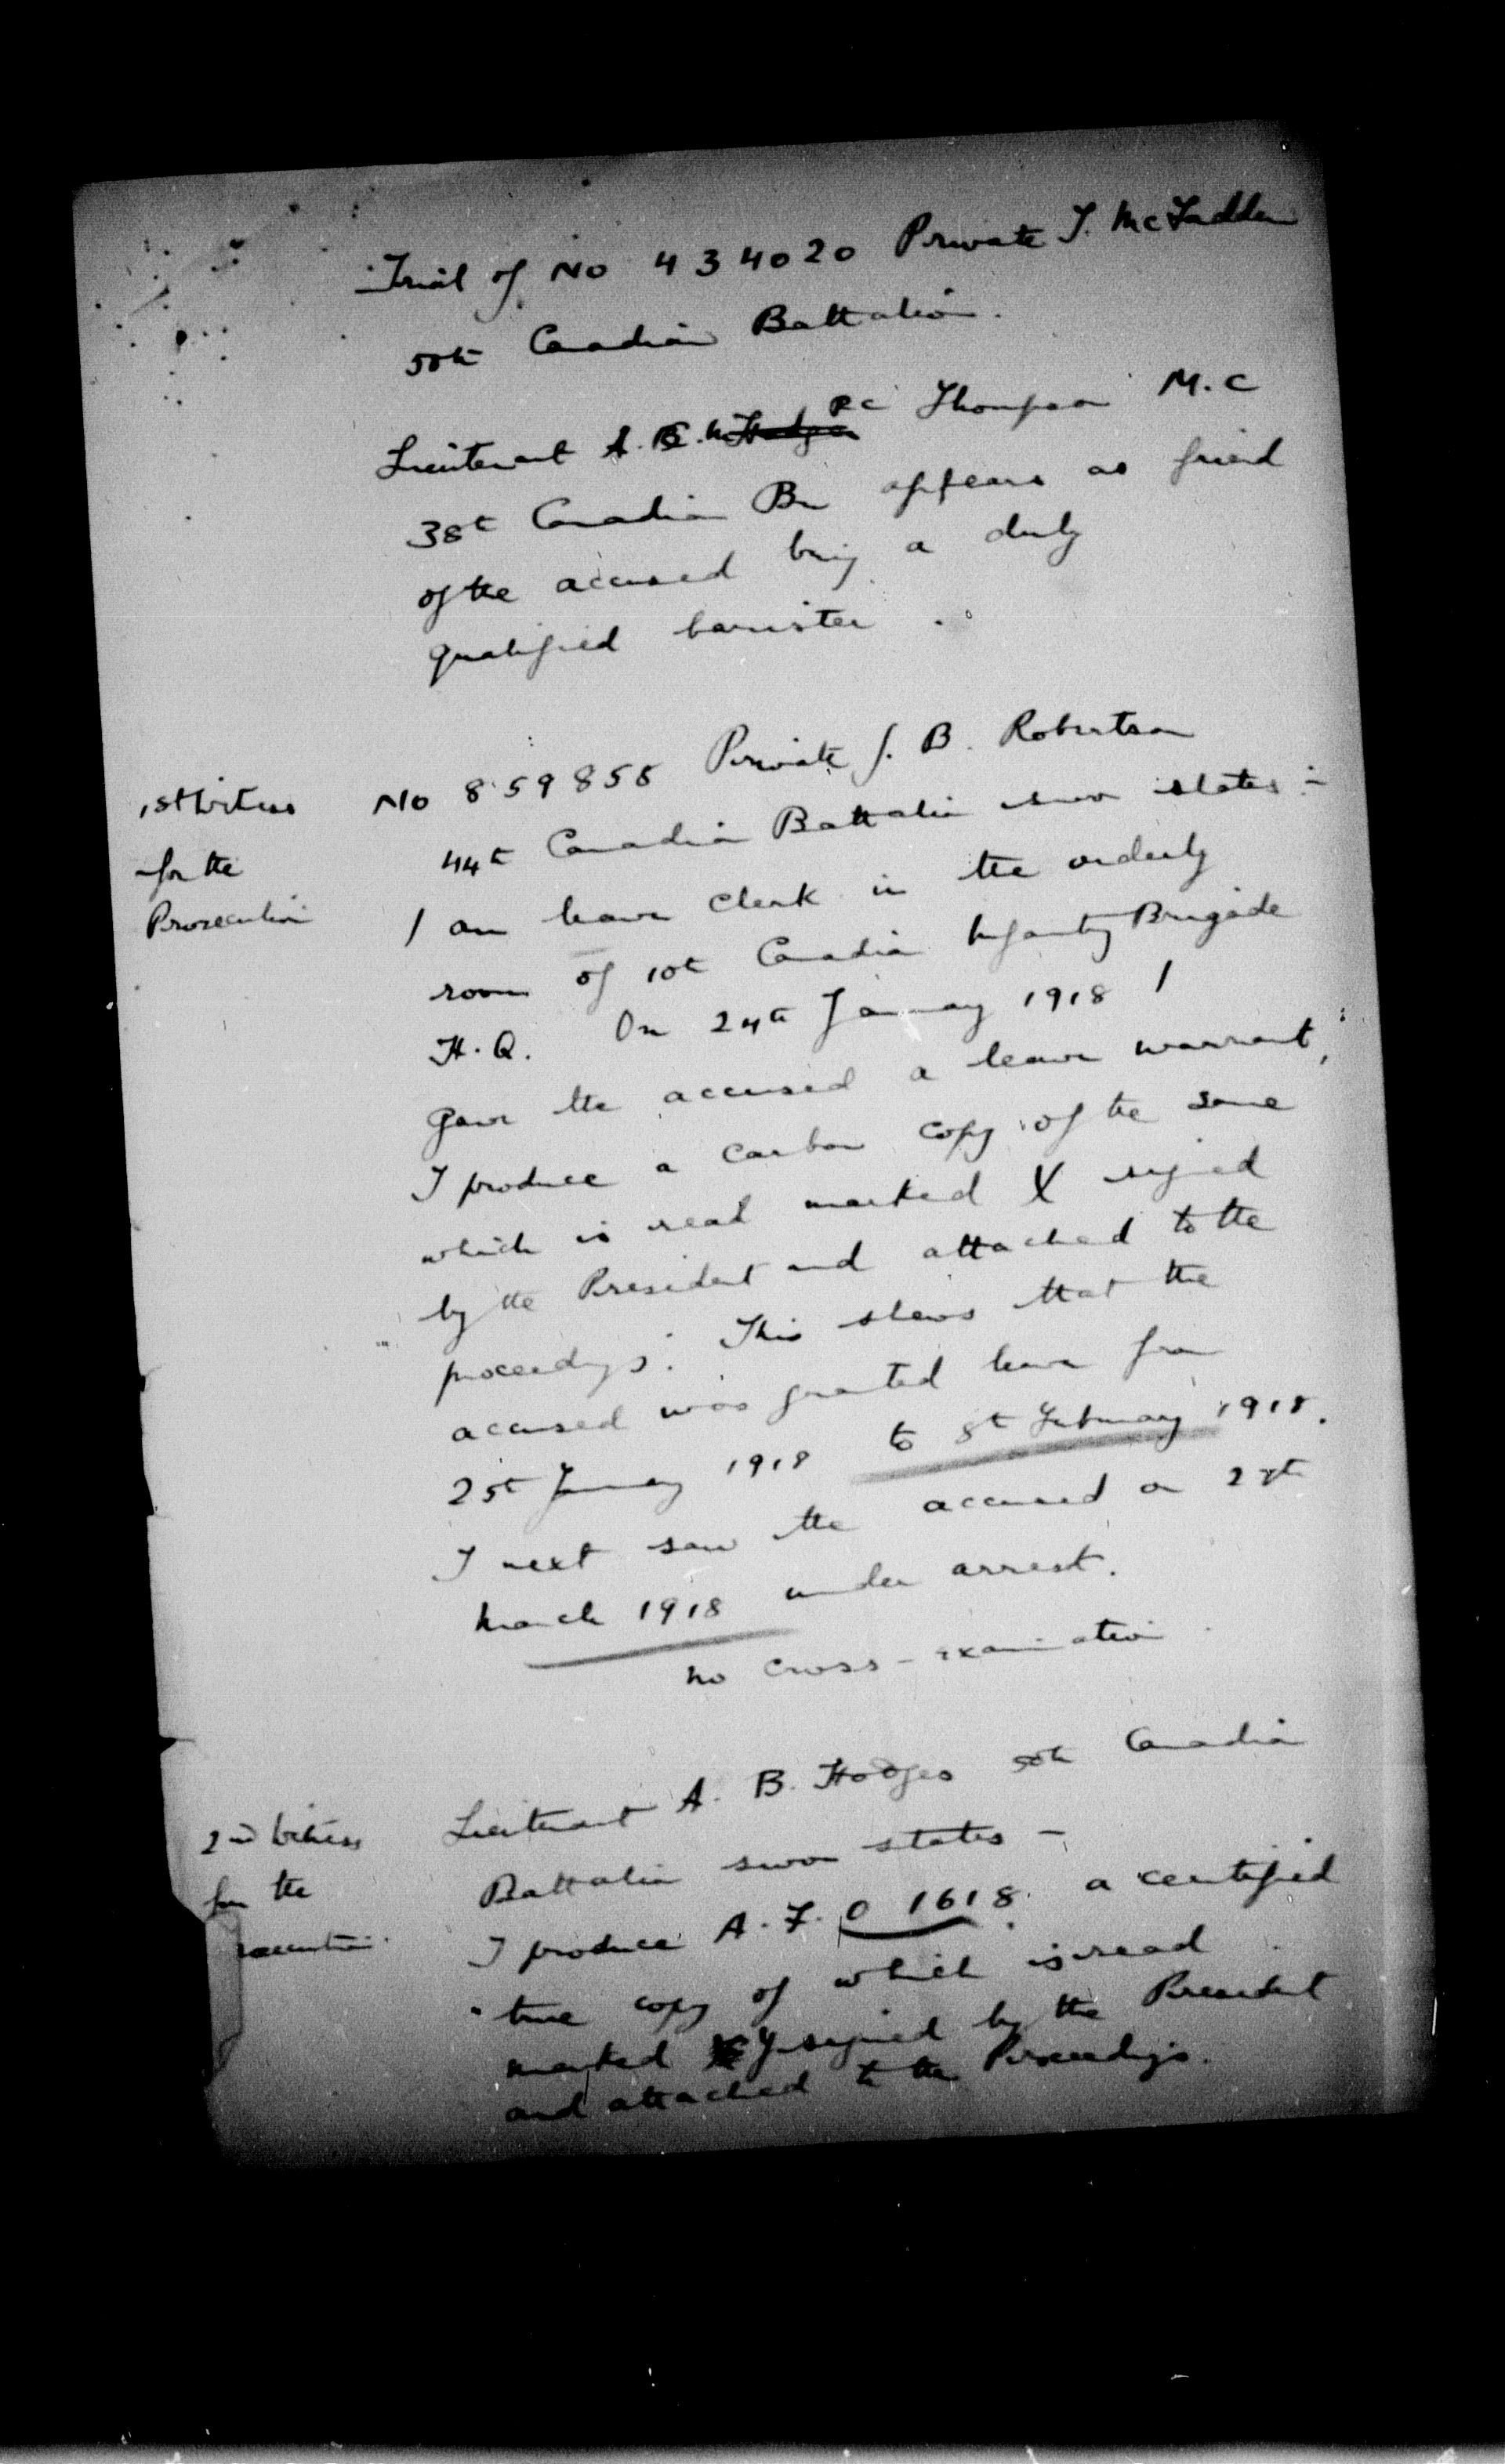 Trial of No 434020 Private J. McFadden
50th Canadian Battalion.
Lieutenant A. R C Thompson M.C
38th Canadian Bn appears as friend
of the accused being a duly
qualified barrister.
1st Witness
for the
Prosecution
No 859855 Private J. B. Robertson
44th Canadian Battalion sworn states :-
I am leave clerk in the orderly
room of 10th Canadian Infantry Brigade
H.Q. On 24th January 1918 I
gave the accused a leave warrant,
I produce a carbon copy of the same
which is read marked X signed
by the President and attached to the
proceedings. This shews that the
accused was granted leave from
25th January 1918 to 8th February 1918.
I next saw the accused on 28th
March 1918 under arrest.
No cross-examination
2nd Witness
for the
Lieutenant A. B. Hodges 50th Canadian
Battalion sworn states -
I produce A.F. O 1618. a certified
true copy of which is read
marked Y signed by the President
and attached to the Proceedings.